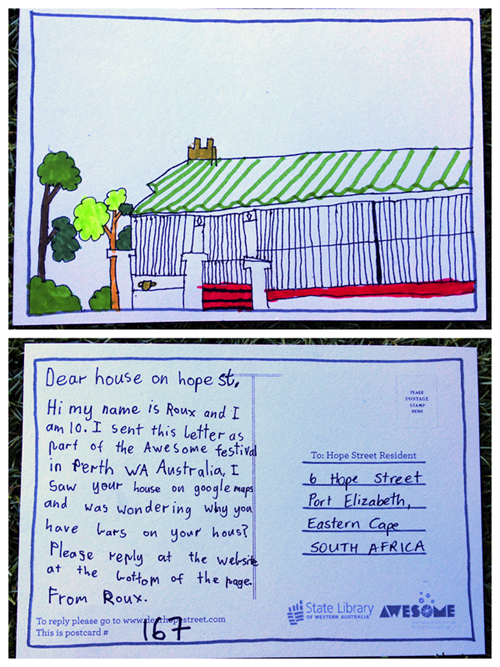 Dear house on hope st,
Hi my name is Roux and I
am 10. I sent this letter as
part of the Awesome festival
in Perth WA Australia, I
saw your house on google maps
and was wondering why you
have bars on your hous?
Please reply at the website
at the bottom of the page.
From Roux.
To reply please go to www.dearhopestreet.com
This is postcard # 167
PLACE
POSTAGE
STAMP
HERE
To: Hope Street Resident
6 Hope Street
Port Elizabeth,
Eastern Cape
SOUTH AFRICA
State Library
OF WESTERN AUSTRALIA
AWESOME